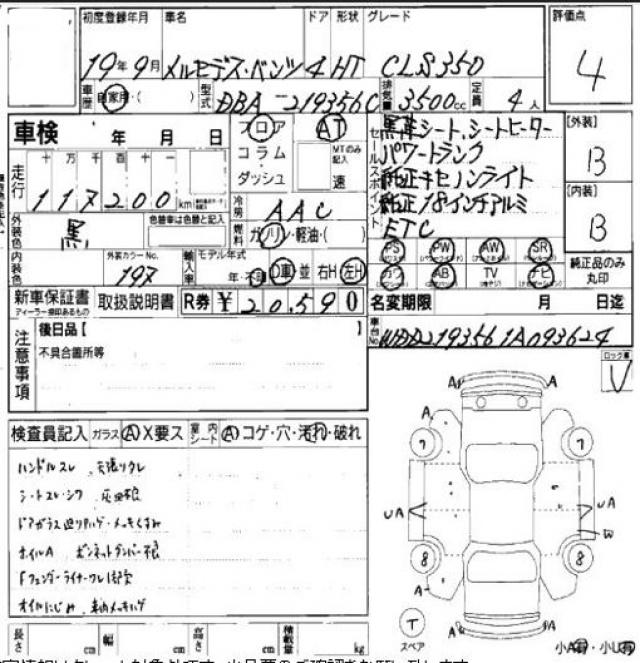 初度登録年月 車名 ドア 形状 グレード 評価点
19年9月 メルセデス・ベンツ 4 HT CLS350 4
車歴 自家用・( ) 型式 DBA-219356C 排気量 3500cc 定員 4人
車検 年 月 日
フロア AT
コラム・
ダッシュ
MTのみ記入
速
セールスポイント
黒革シート、シートヒーター
パワートランク
純正キセノンライト
純正18インチアルミ
ETC
[外装]
B
[内装]
B
走行 十 万 千 百 十 一
117200km
冷房 AAC
燃料 ガソリン・軽油・( )
外装色 黒 色替車は色替と記入
内装色 外装カラーNo. 197
輸入車 モデル年式 年・不明 D車 並 右H・左H
PS PW AW SR
カワ AB TV ナビ
純正品のみ丸印
新車保証書 取扱説明書 R券 ¥20,590
ディーラー捺印あるもの
名変期限 月 日迄
車台No. WDD2193561A093624
注意事項
後日品【 】
不具合箇所等
検査員記入 ガラス A X要ス 室内シート A コゲ・穴・汚れ・破れ
ハンドルスレ 天張リクレ
シートスレ・シワ 灰皿不良
ホイルA ボンネットダンパー不良
オイルにじみ
長さ cm 幅 cm 高さ cm 積載量 kg
A A
A
7 7
UA UA
W
8 8
A
T
スペア
A A
小A有・小U有